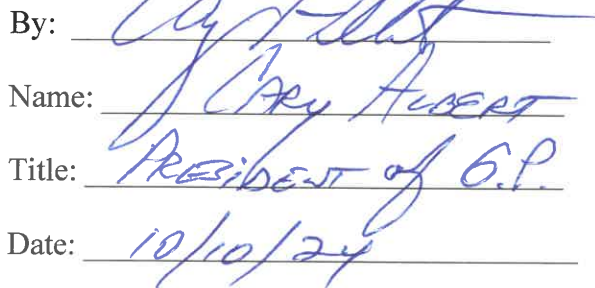 By:
Name: CARY ALBERT
Title: PRESIDENT of G.P.
Date: 10/10/24